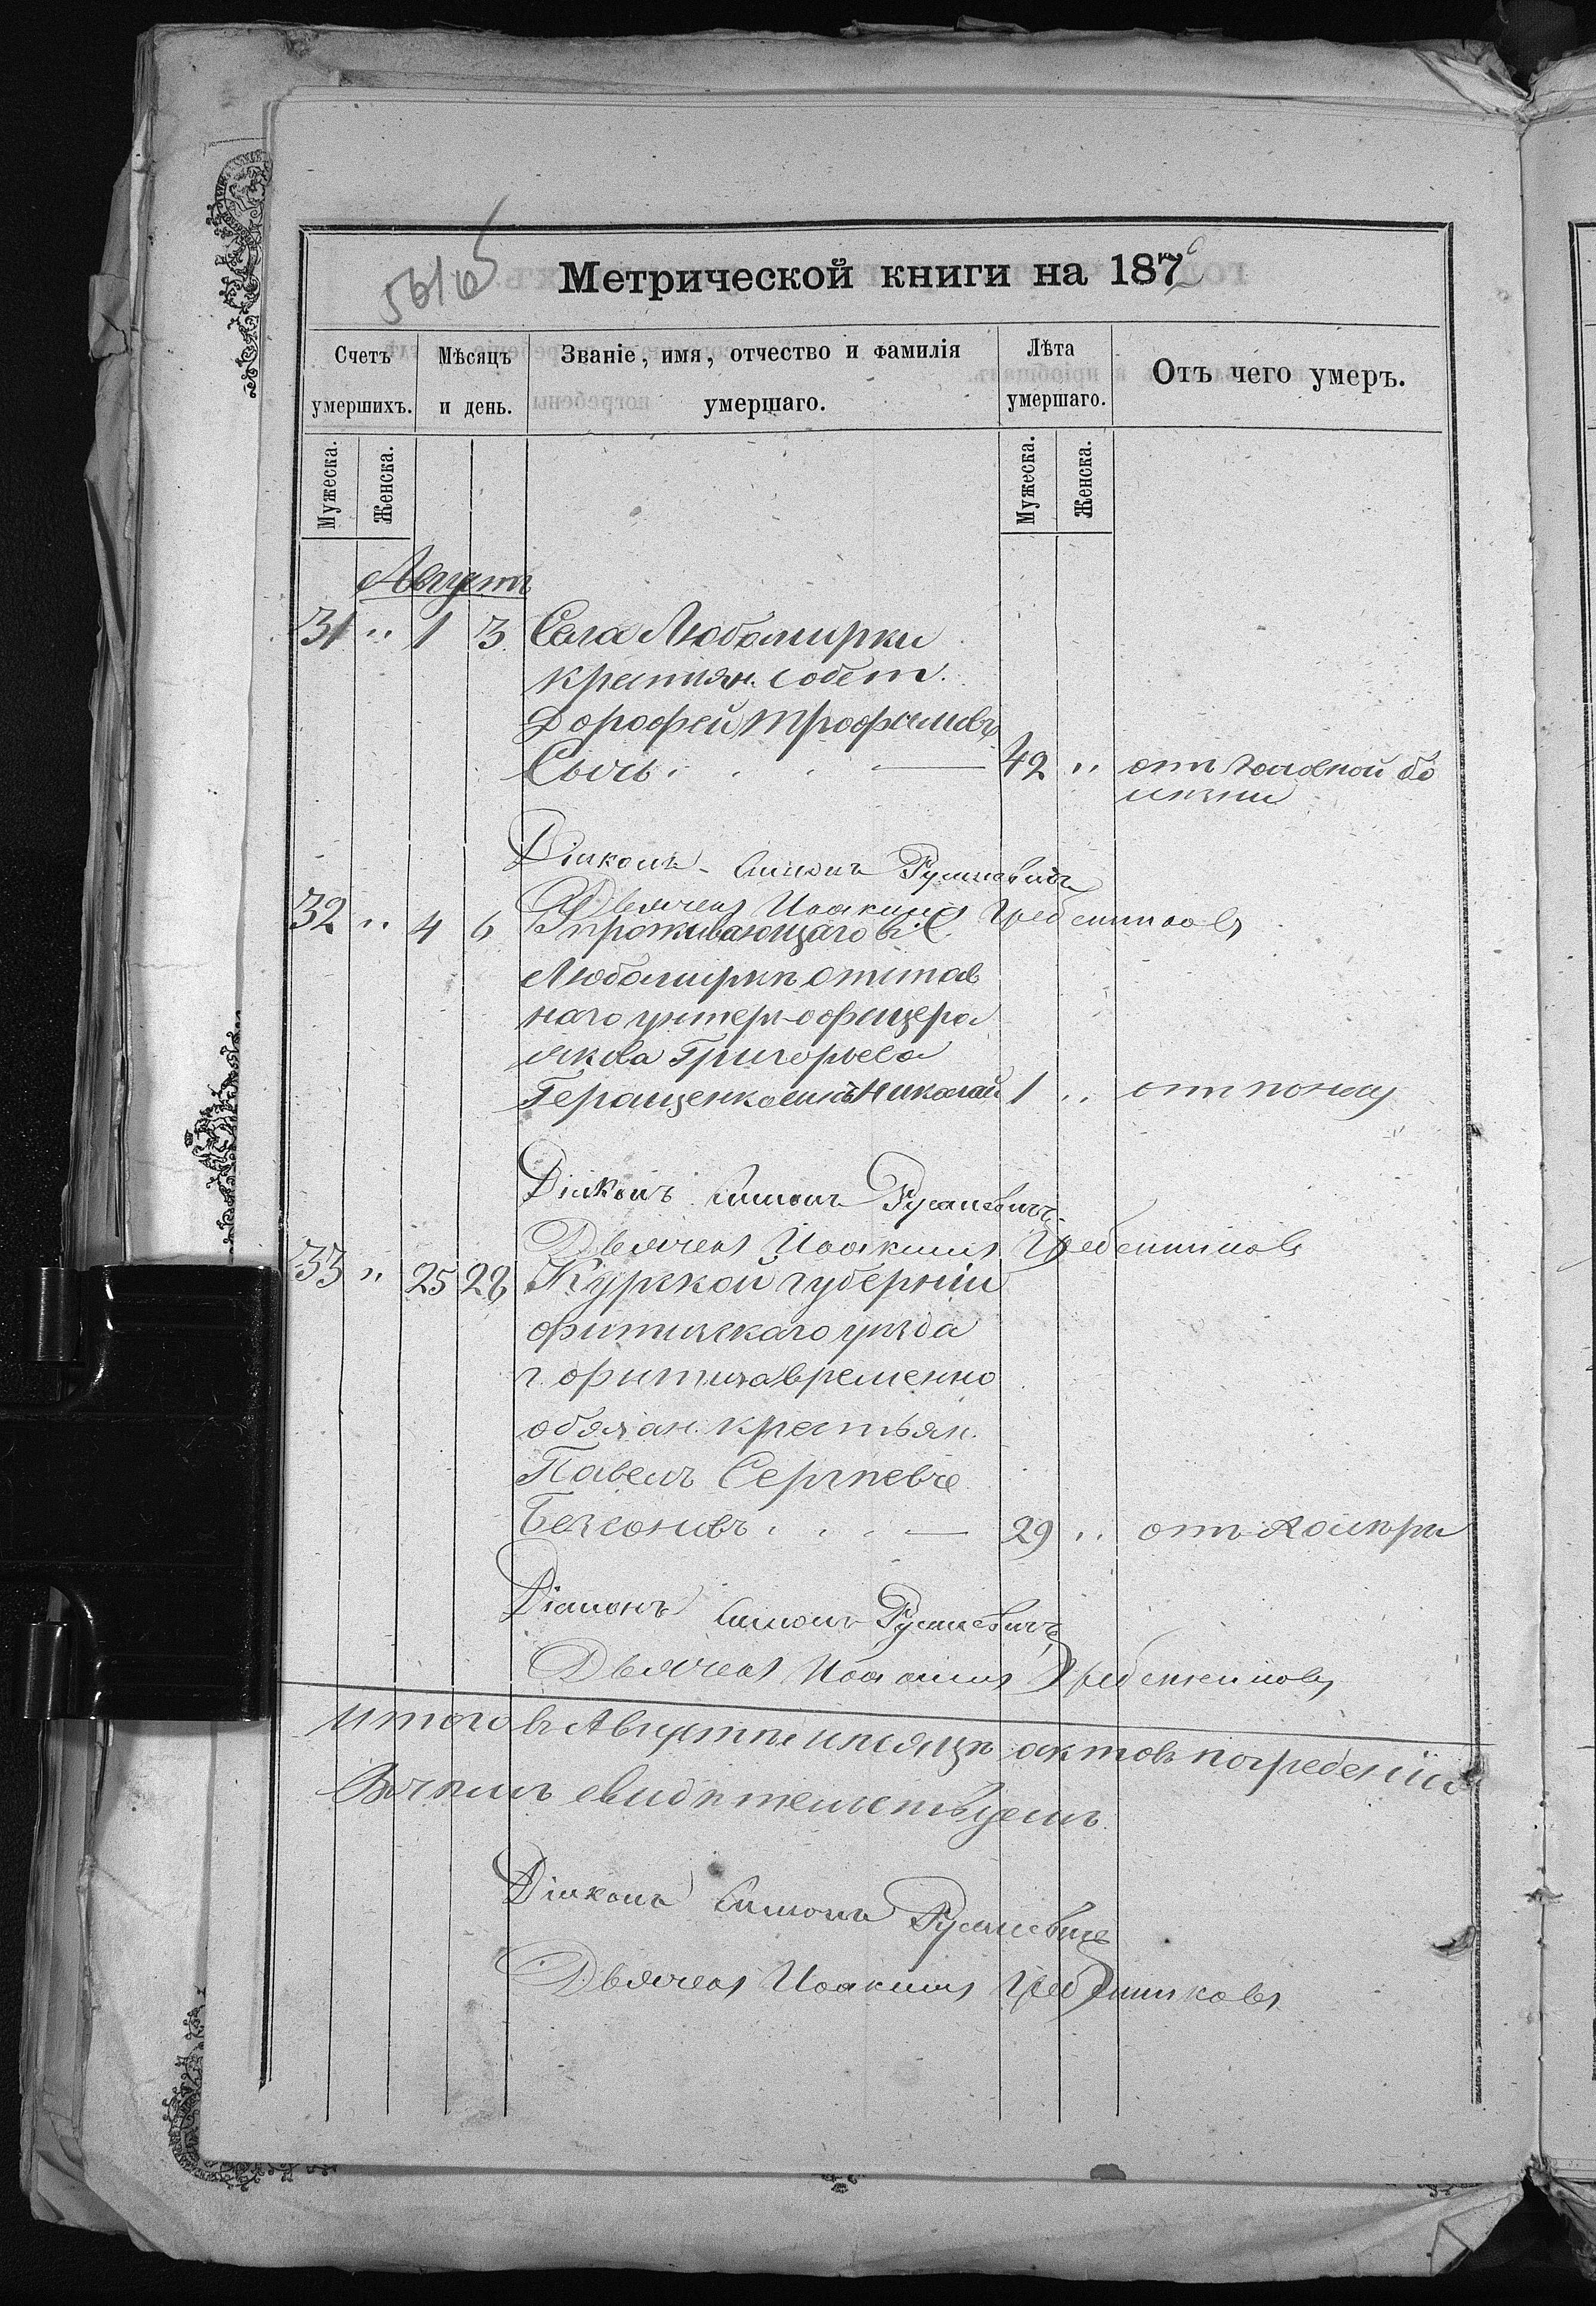 Метрической книги на 187
Счетъ умершихъ.
Мѣсяцъ и день.
Званіе, имя, отчество и фамилія умершаго.
Лѣта умершаго.
Отъ чего умеръ.
Мужеска.
Женска.
Мужеска.
Женска.
Августъ
31 " 1 3 Села Любомирки
крестьян. собст.
Дорофей Трофимовъ
Сычъ 42 " отъ головной бо
лѣзни
Діаконъ Симонъ Русаневичъ
Дьячекъ Иоакимъ Гребенниковъ
32 " 4 6 Упроживающаго въ С.
Любомиркѣ отстав
наго унтеръ-офицера
Якова Григорьева
Геращенко сынъ Николай 1 " отъ поносу
Діаконъ Симонъ Русаневичъ
Дьячекъ Иоакимъ Гребенниковъ
33 " 25 28 Курской губерніи
Фатижскаго уѣзда
г. Фатижа временно
обязан. крестьян.
Павелъ Сергѣевъ
Безсоновъ 29 " отъ холѣри
Діаконъ Симонъ Русаневичъ
Дьячекъ Иоакимъ Гребенниковъ
Итого въ Августѣ мѣсяцѣ актовъ погребенія
Въ чемъ свидѣтельствуемъ
Діаконъ Симонъ Русаневичъ
Дьячекъ Иоакимъ Гребенниковъ